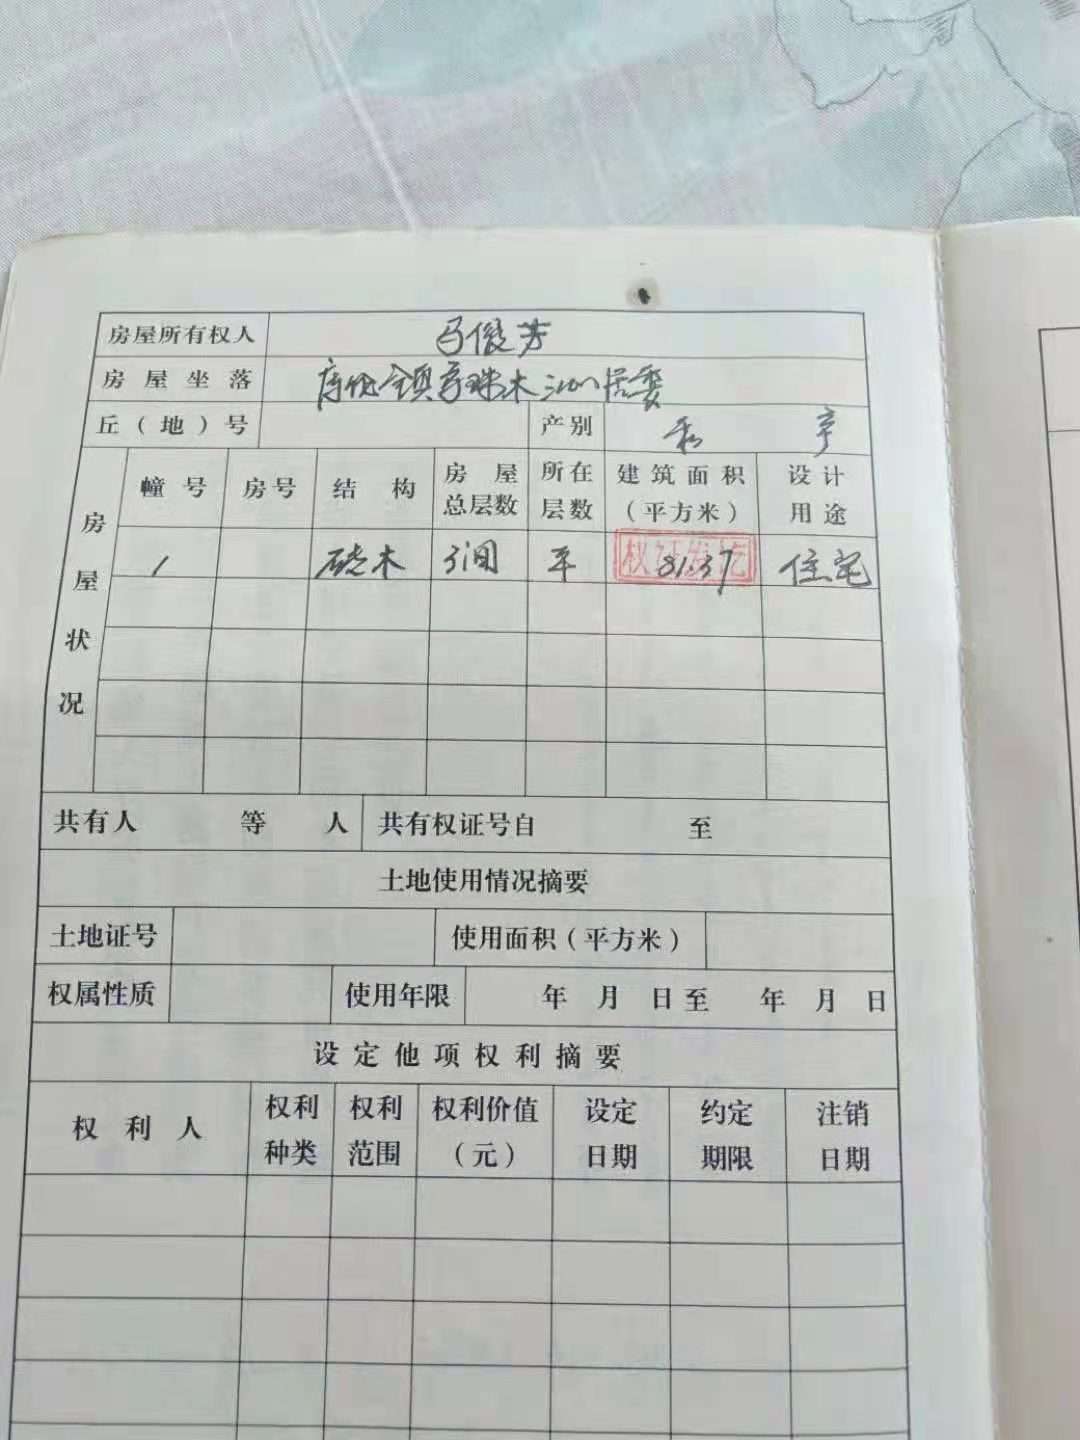 房屋所有权人 马俊芳
房屋坐落 库伦镇 木 居委
丘（地）号 产别 私 产
房屋状况 幢号 房号 结构 房屋总层数 所在层数 建筑面积（平方米） 设计用途
1 砖木 3间 平 81.37 住宅
共有人 等 人 共有权证号自 至
土地使用情况摘要
土地证号 使用面积（平方米）
权属性质 使用年限 年 月 日至 年 月 日
设定他项权利摘要
权利人 权利种类 权利范围 权利价值（元） 设定日期 约定期限 注销日期